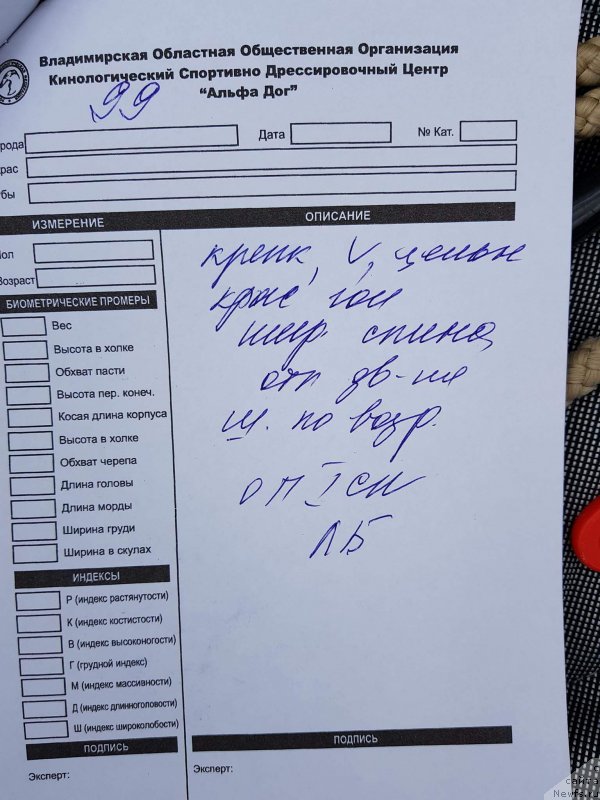 Владимирская Областная Общественная Организация
Кинологический Спортивно Дрессировочный Центр
"Альфа Дог"
99
рода
Дата
№ Кат.
рас
бы
ИЗМЕРЕНИЕ
ОПИСАНИЕ
Пол
Возраст
БИОМЕТРИЧЕСКИЕ ПРОМЕРЫ
Вес
Высота в холке
Обхват пасти
Высота пер. конеч.
Косая длина корпуса
Высота в холке
Обхват черепа
Длина головы
Длина морды
Ширина груди
Ширина в скулах
ИНДЕКСЫ
Р (индекс растянутости)
К (индекс костистости)
В (индекс высоконогости)
Г (грудной индекс)
М (индекс массивности)
Д (индекс длинноголовости)
Ш (индекс широколобости)
ПОДПИСЬ
Эксперт:
крепк, V,
крас гол
шир спина
отл дв-ия
ш. по возр.
ЛБ
ПОДПИСЬ
Эксперт:
с
сайта
Newfs.ru